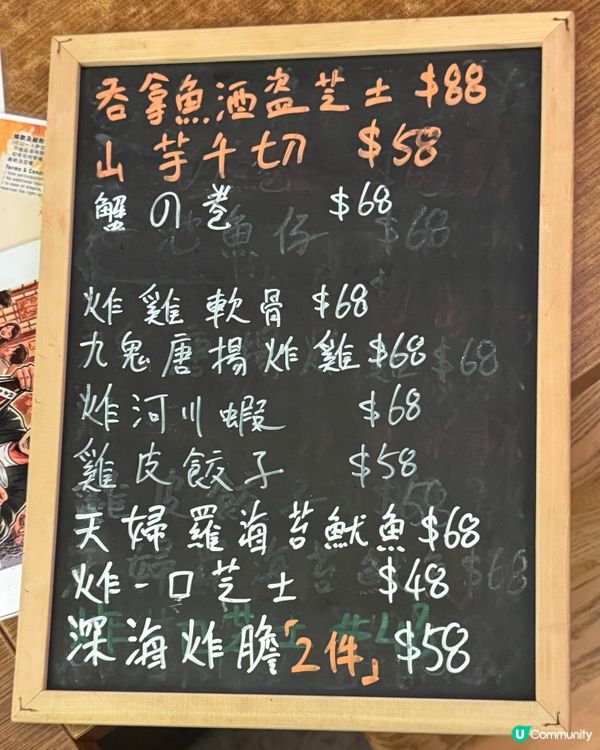 吞拿魚酒盜芝士 $88
山芋千切 $58
蟹の卷 $68
炸雞軟骨 $68
九鬼唐揚炸雞 $68
炸河川蝦 $68
雞皮餃子 $58
天婦羅海苔魷魚 $68
炸一口芝士 $48
深海炸膽「2件」 $58
Terms & Condi
U Community